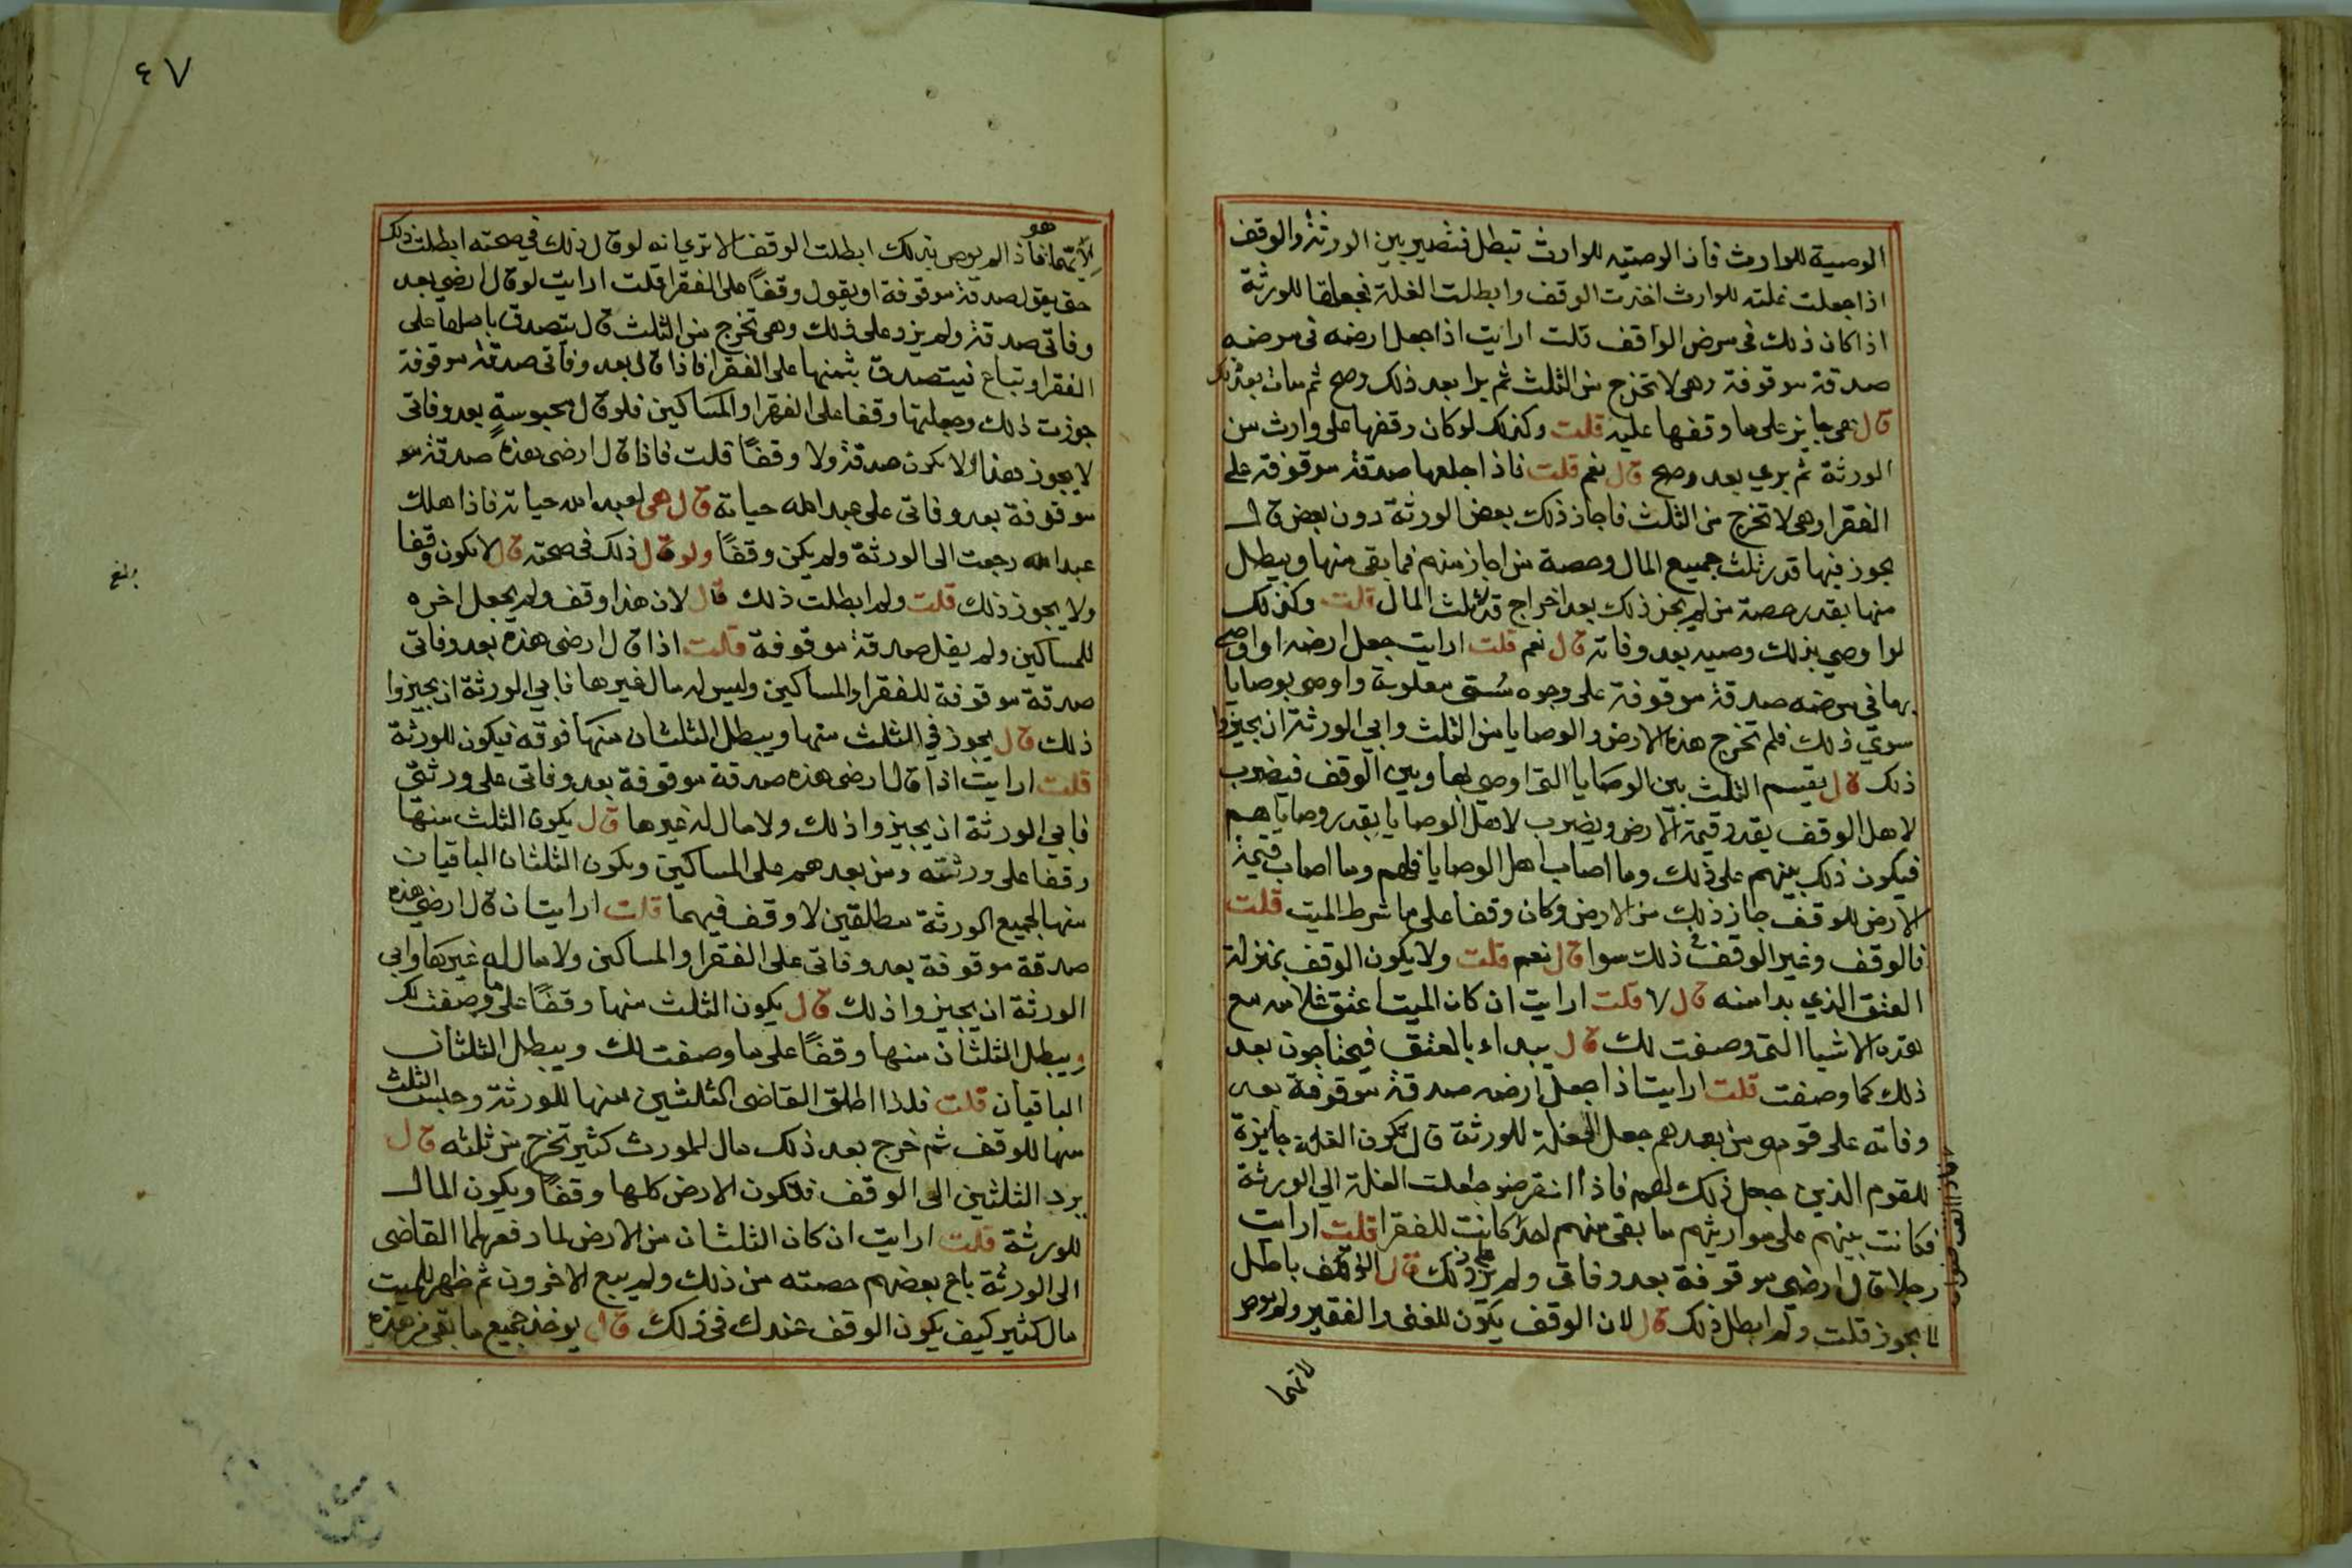 الوصية للوارث فأذ الوصيته للوارث تبطل فتصير بين الورثة والوقف
اذا جعلت غلته للوارث اخترت الوقف وابطلت الغلة نجعلها للورثة
اذا كان ذلك في مرض الواقف قلت ارايت اذا جعل ارضه في مرضه
صدقة موقوفة وهي لا تخرج من الثلث ثم برا بعد ذلك وصح ثم مات بعد ذلك
قال هي جايز على ما وقفها عليه قلت وكذلك لو كان وقفها على وارث من
الورثة ثم بري بعد وصح قال نعم قلت فاذا جعلها صدقة موقوفة على
الفقرا وهي لا تخرج من الثلث فاجاز ذلك بعض الورثة دون بعض قال
يجوز فيها قدر ثلث جميع المال وحصة من اجاز منهم فما بقى منها ويبطل
منها بقدر حصة من لم يجز ذلك بعد اخراج قدر ثلث المال قلت وكذلك
لو اوصي بذلك وصيه بعد وفاته قال نعم قلت ارايت جعل ارضه او اوصى
بها في مرضه صدقة موقوفة على وجوه سُتى معلومة واوصى بوصايا
سوي ذلك فلم تخرج هذه الارض والوصايا من الثلث وابي الورثة ان يجيزوا
ذلك قال يقسم الثلث بين الوصايا التى اوصي بها وبين الوقف فيضرب
لاهل الوقف بقدر قيمة الارض ويضرب لاهل الوصايا بقدر وصاياهم
فيكون ذلك بينهم على ذلك وما اصاب اهل الوصايا فلهم وما اصاب قيمة
الارض للوقف جاز ذلك من الارض وكان وقفا على ما شرط الميت قلت
فالوقف وغير الوقف في ذلك سوا قال نعم قلت ولا يكون الوقف بمنزلة
العتق الذي بدا منه قال لا قلت ارايت ان كان الميت اعتق غلامه مع
هذه الاشياا التى وصفت لك قال يبداء بالعتق فيحتاجون بعد
ذلك كما وصفت قلت ارايت اذا جعل ارضه صدقة موقوفة بعد
وفاته على قوم ومن بعدهم جعل الغلة للورثة قال تكون الغلة جايزة
للقوم الذين جعل ذلك لهم فاذا انقرضوا جعلت الغلة الي الورثة
فكانت بينهم على مواريثهم ما بقى منهم احد كانت للفقرا قلت ارايت
رجلا قال ارضى موقوفة بعد وفاتى ولم يزد على ذلك قال الوقف باطل
لا يجوز قلت ولم ابطل ذلك قال لان الوقف يكون للغنى والفقير ولم يوص
لاتهما
٤٧
هو
لاتهما فاذا لم يوص بذلك ابطلت الوقف الا تري انه لو قال ذلك في صحته ابطلت ذلك
حتى يقول صدقة موقوفة او يقول وقفاً على الفقرا قلت ارايت لو قال ارضي بعد
وفاتي صدقة ولم يزد على ذلك وهي تخرج من الثلث قال يتصدق باصلها على
الفقرا وتباع فيتصدق بثمنها على الفقرا فاذا قال بعد وفاتى صدقة موقوفة
جوزت ذلك وجعلتها وقفا على الفقرا والمساكين فلو قال محبوسةٍ بعد وفاتى
لا يجوز هذا ولا يكون صدقة ولا وقفاً قلت فاذا قال ارضى هذه صدقة مو
موقوفة بعد وفاتى على عبد الله حياته قال هي لعبد الله حياته فاذا هلك
عبد الله رجعت الى الورثة ولم يكن وقفاً ولو قال ذلك في صحته قال لا يكون وقفا
ولا يجوز ذلك قلت ولم ابطلت ذلك قال لان هذا وقف ولم يجعل اخره
للمساكين ولم يقل صدقة موقوفة قلت اذا قال ارضى هذه بعد وفاتى
صدقة موقوفة للفقرا والمساكين وليس له مال غيرها فابي الورثة ان يجيزوا
ذلك قال يجوز في الثلث منها ويبطل الثلثان منها فوقه فيكون للورثة
قلت ارايت اذا قال ارضى هذه صدقة موقوفة بعد وفاتى على ورثتى
فابي الورثة ان يجيزوا ذلك ولا مال له غيرها قال يكون الثلث منها
وقفا على ورثته ومن بعدهم على المساكين ويكون الثلثان الباقيان
منها لجميع الورثة مطلقين لا وقف فيهما قلت ارايت ان قال ارضي هذه
صدقة موقوفة بعد وفاتى على الفقرا والمساكين ولا مال له غيرها وابى
الورثة ان يجيزوا ذلك قال يكون الثلث منها وقفاً على ما وصفت لك
ويبطل الثلثان منها وقفاً على ما وصفت لك ويبطل الثلثان
الباقيان قلت فلذا اطلق القاضى الثلثين منها للورثة وحبس الثلث
منها للوقف ثم خرج بعد ذلك مال للمورث كثير تخرج من ثلثه قال
يرد الثلثين الى الوقف فتكون الارض كلها وقفاً ويكون المال
للورثة قلت ارايت ان كان الثلثان من الارض لما دفعهما القاضى
الى الورثة باع بعضهم حصته من ذلك ولم يبع الاخرون ثم ظهر للميت
مال كثير كيف يكون الوقف عندك في ذلك قال يوخذ جميع ما بقى من هذه
بلغ